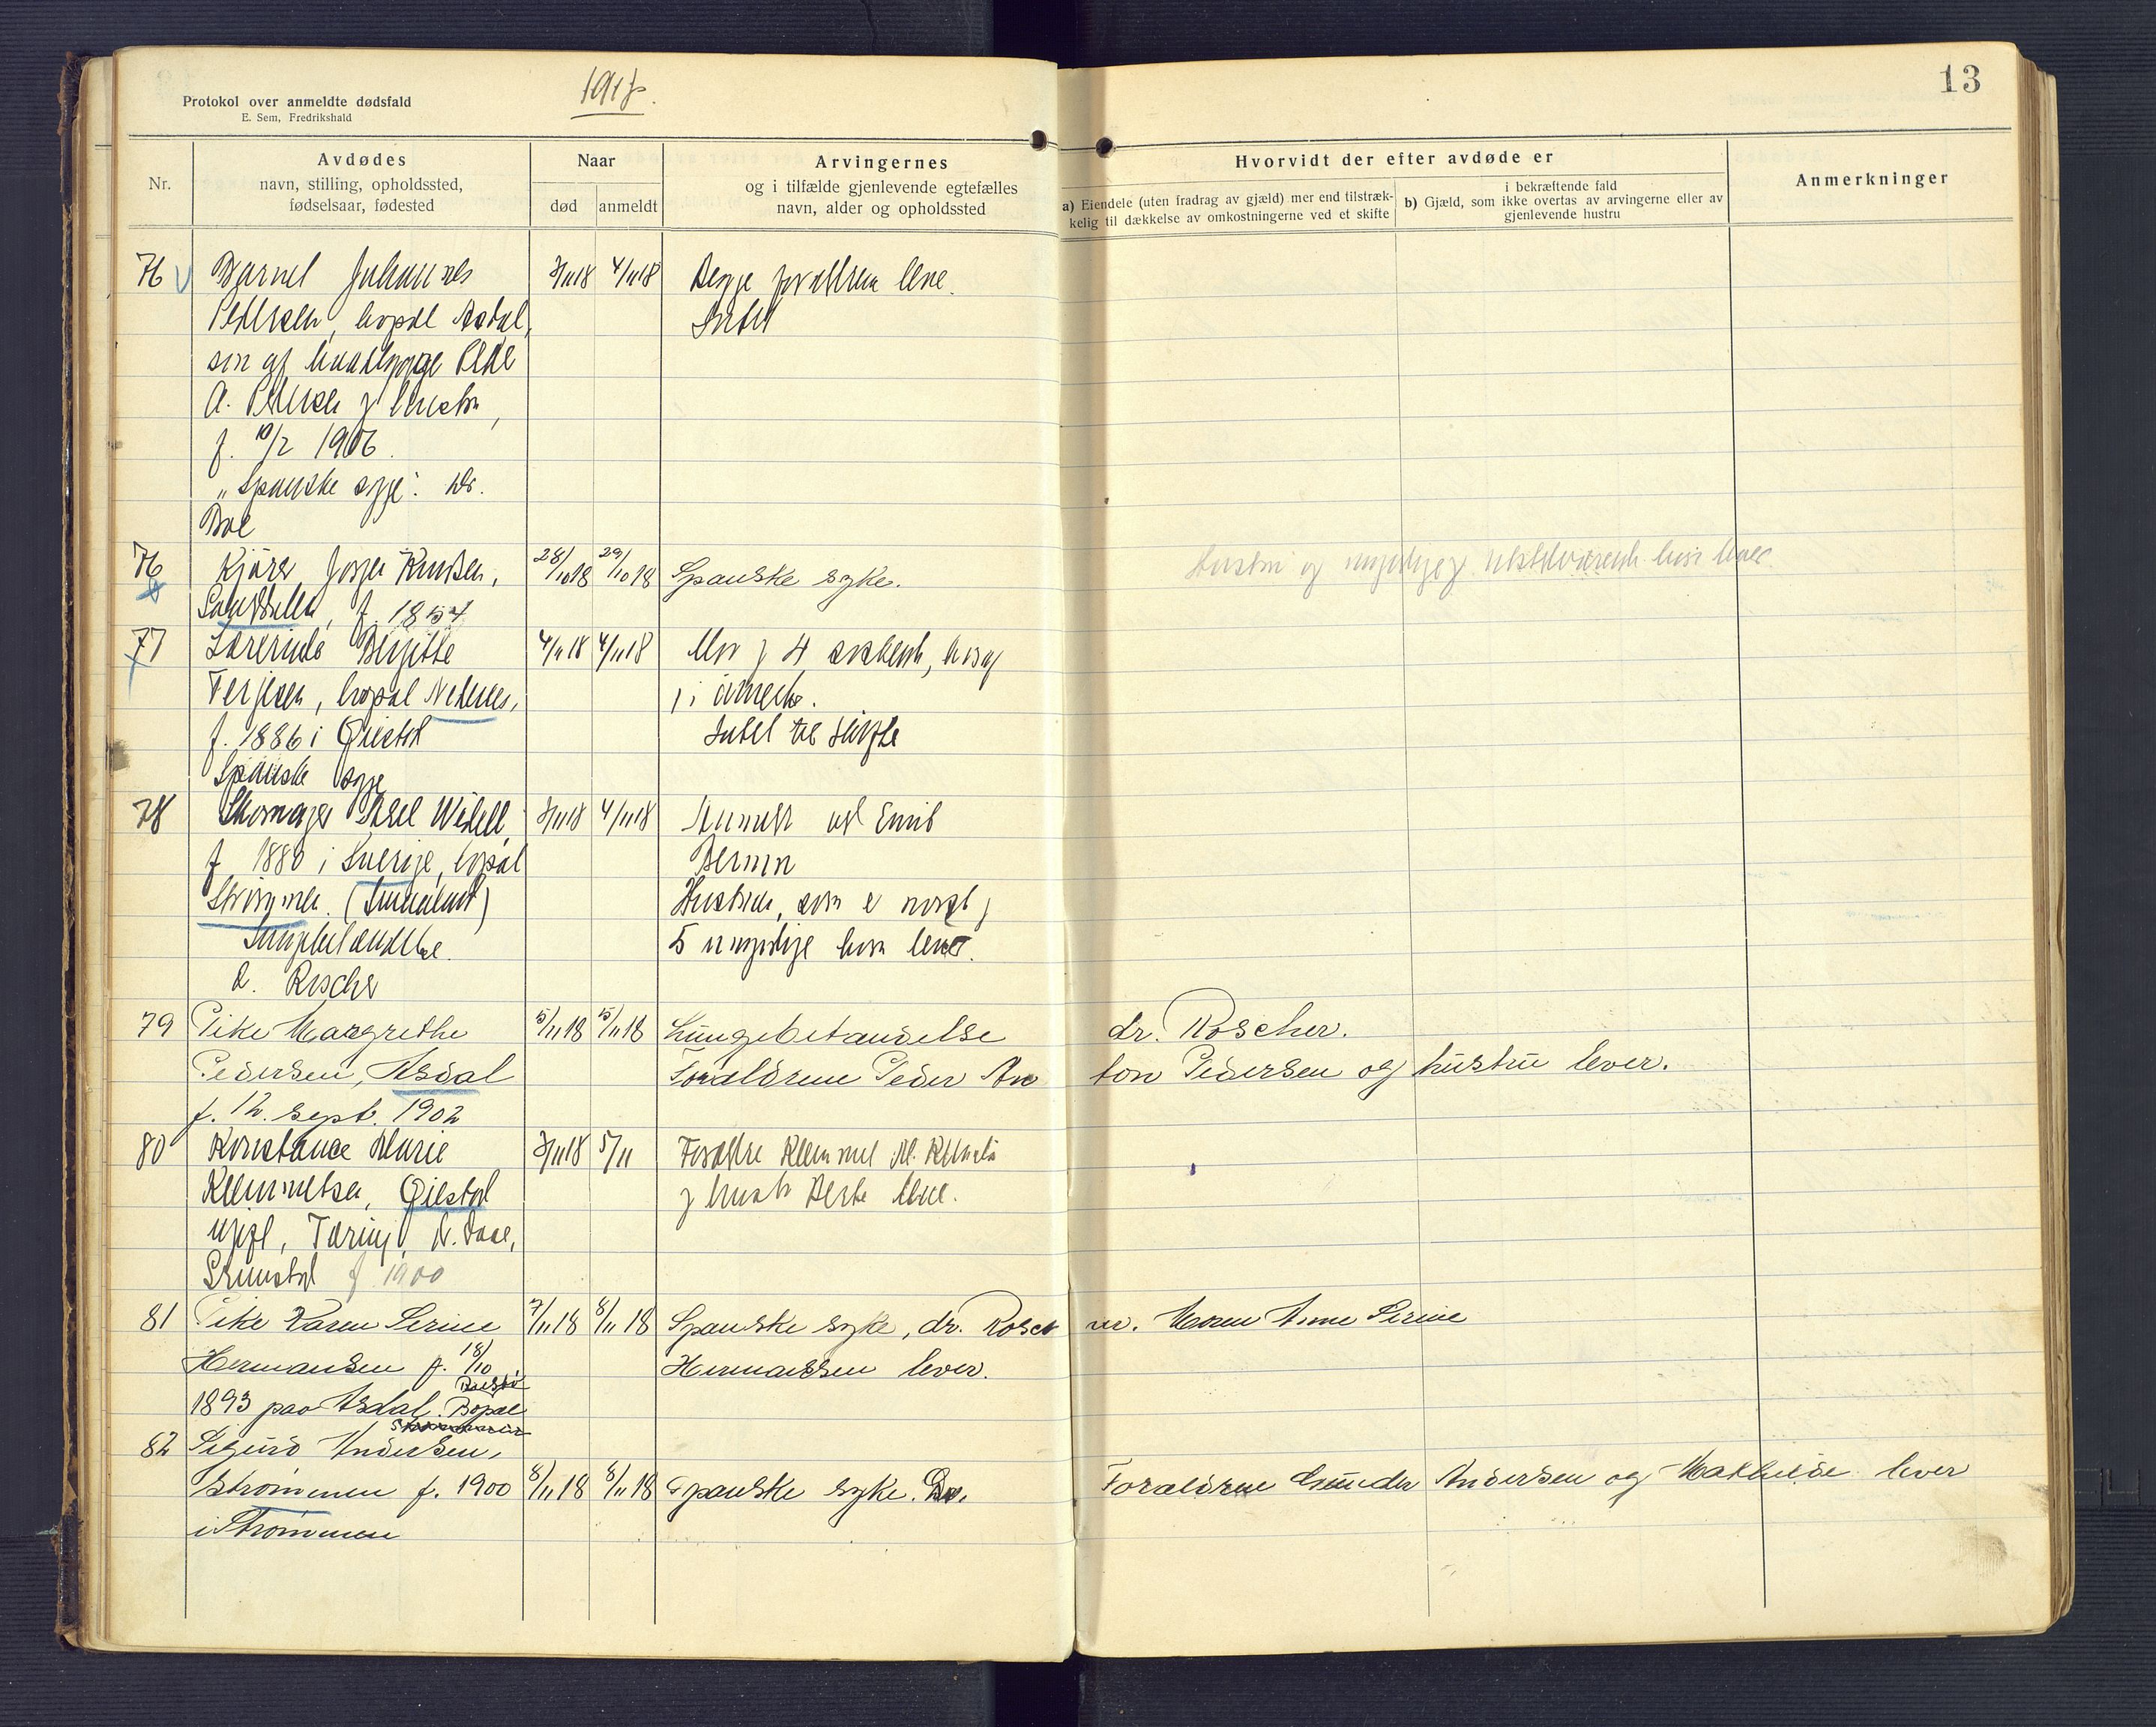 1918.
13
Protokol over anmeldte dødsfald
E. Sem, Fredrikshald
Nr.
Avdødes
navn, stilling, opholdssted,
fødselsaar, fødested
Naar
død
anmeldt
Arvingernes
og i tilfælde gjenlevende egtefælles
navn, alder og opholdssted
Hvorvidt der efter avdøde er
a) Eiendele (uten fradrag av gjæld) mer end tilstræk-
kelig til dækkelse av omkostningerne ved et skifte
i bekræftende fald
b) Gjæld, som ikke overtas av arvingerne eller av
gjenlevende hustru
Anmerkninger
76 Barnet Johannes 3/11 18 4/11 18 Begge forældrene lever.
Pedersen, bopæl Asdal, Intet
søn af Peder
A. Pedersen og hustru,
f. 10/2 1906.
"Spanske syge". Dr.
Boe
76 Kjører Jørgen Knudsen, 28/10 18 29/10 18 Spanske syke. Hustru og myndige tilstedeværende børn lever.
f. 1857
77 Lærerinde Birgitte 4/11 18 4/11 18 Mor og 4 søskende, hvoraf
Terjesen, bopæl Nedenes, 1 i Amerika.
f. 1886 i Øiestad Intet til skifte
Spanske syge
78 Skomager Axel Widell, 3/11 18 4/11 18 Anmeldt ved Emil
f. 1880 i Sverige, bopæl
Strømmen. (Småland) Hustruen, som er norsk, og
Lungebetændelse. 5 umyndige børn lever.
d. Roscher
79 Pike Margrethe 5/11 18 5/11 18 Lungebetændelse dr. Roscher.
Pedersen, Asdal Forældrene Peder An ton Pedersen og hustru lever.
f. 12. sept. 1902
80 Konstance Marie 3/11 18 5/11 Forældre Klemmet
Klemmetsen, Øiestad og hustru Berte lever.
Grimstad f 1900
81 Pike Karen Serine 7/11 18 8/11 18 Spanske syke, dr. Rosch er. Moren Anne Serine
Hermansen f. 18/10 Hermansen lever.
1893 paa Asdal. Bopæl
82 Sigurd Andersen,
Strømmen f. 1900 8/11 18 8/11 18 Spanske syke. Forældrene Gunder Andersen og Mathilde lever
i Strømmen